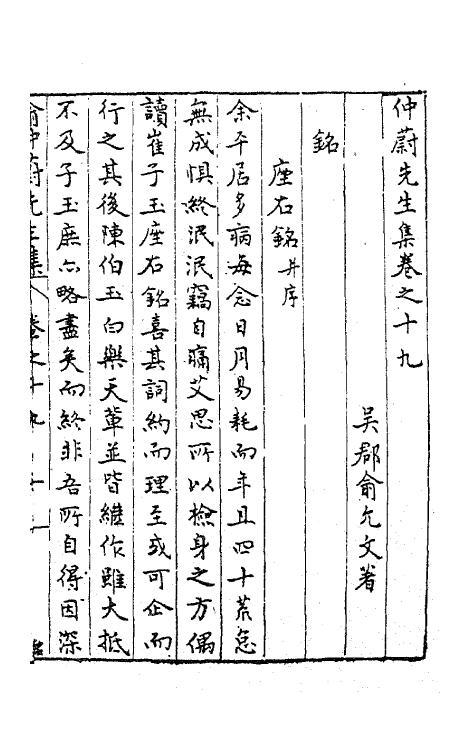 仲蔚先生集卷之十九
吳郡俞允文著
銘
座右銘并序
余平居多病每念日月易耗而年且四十荒怠
無成惧終泯泯竊自痛艾思所以檢身之方偶
讀崔子玉座右銘喜其詞約而理至或可企而
行之其後陳伯玉白樂天軰並皆繼作雖大抵
不及子玉庶亦略盡矣而終非吾所自得因深
俞仲蔚先生集 卷之十九